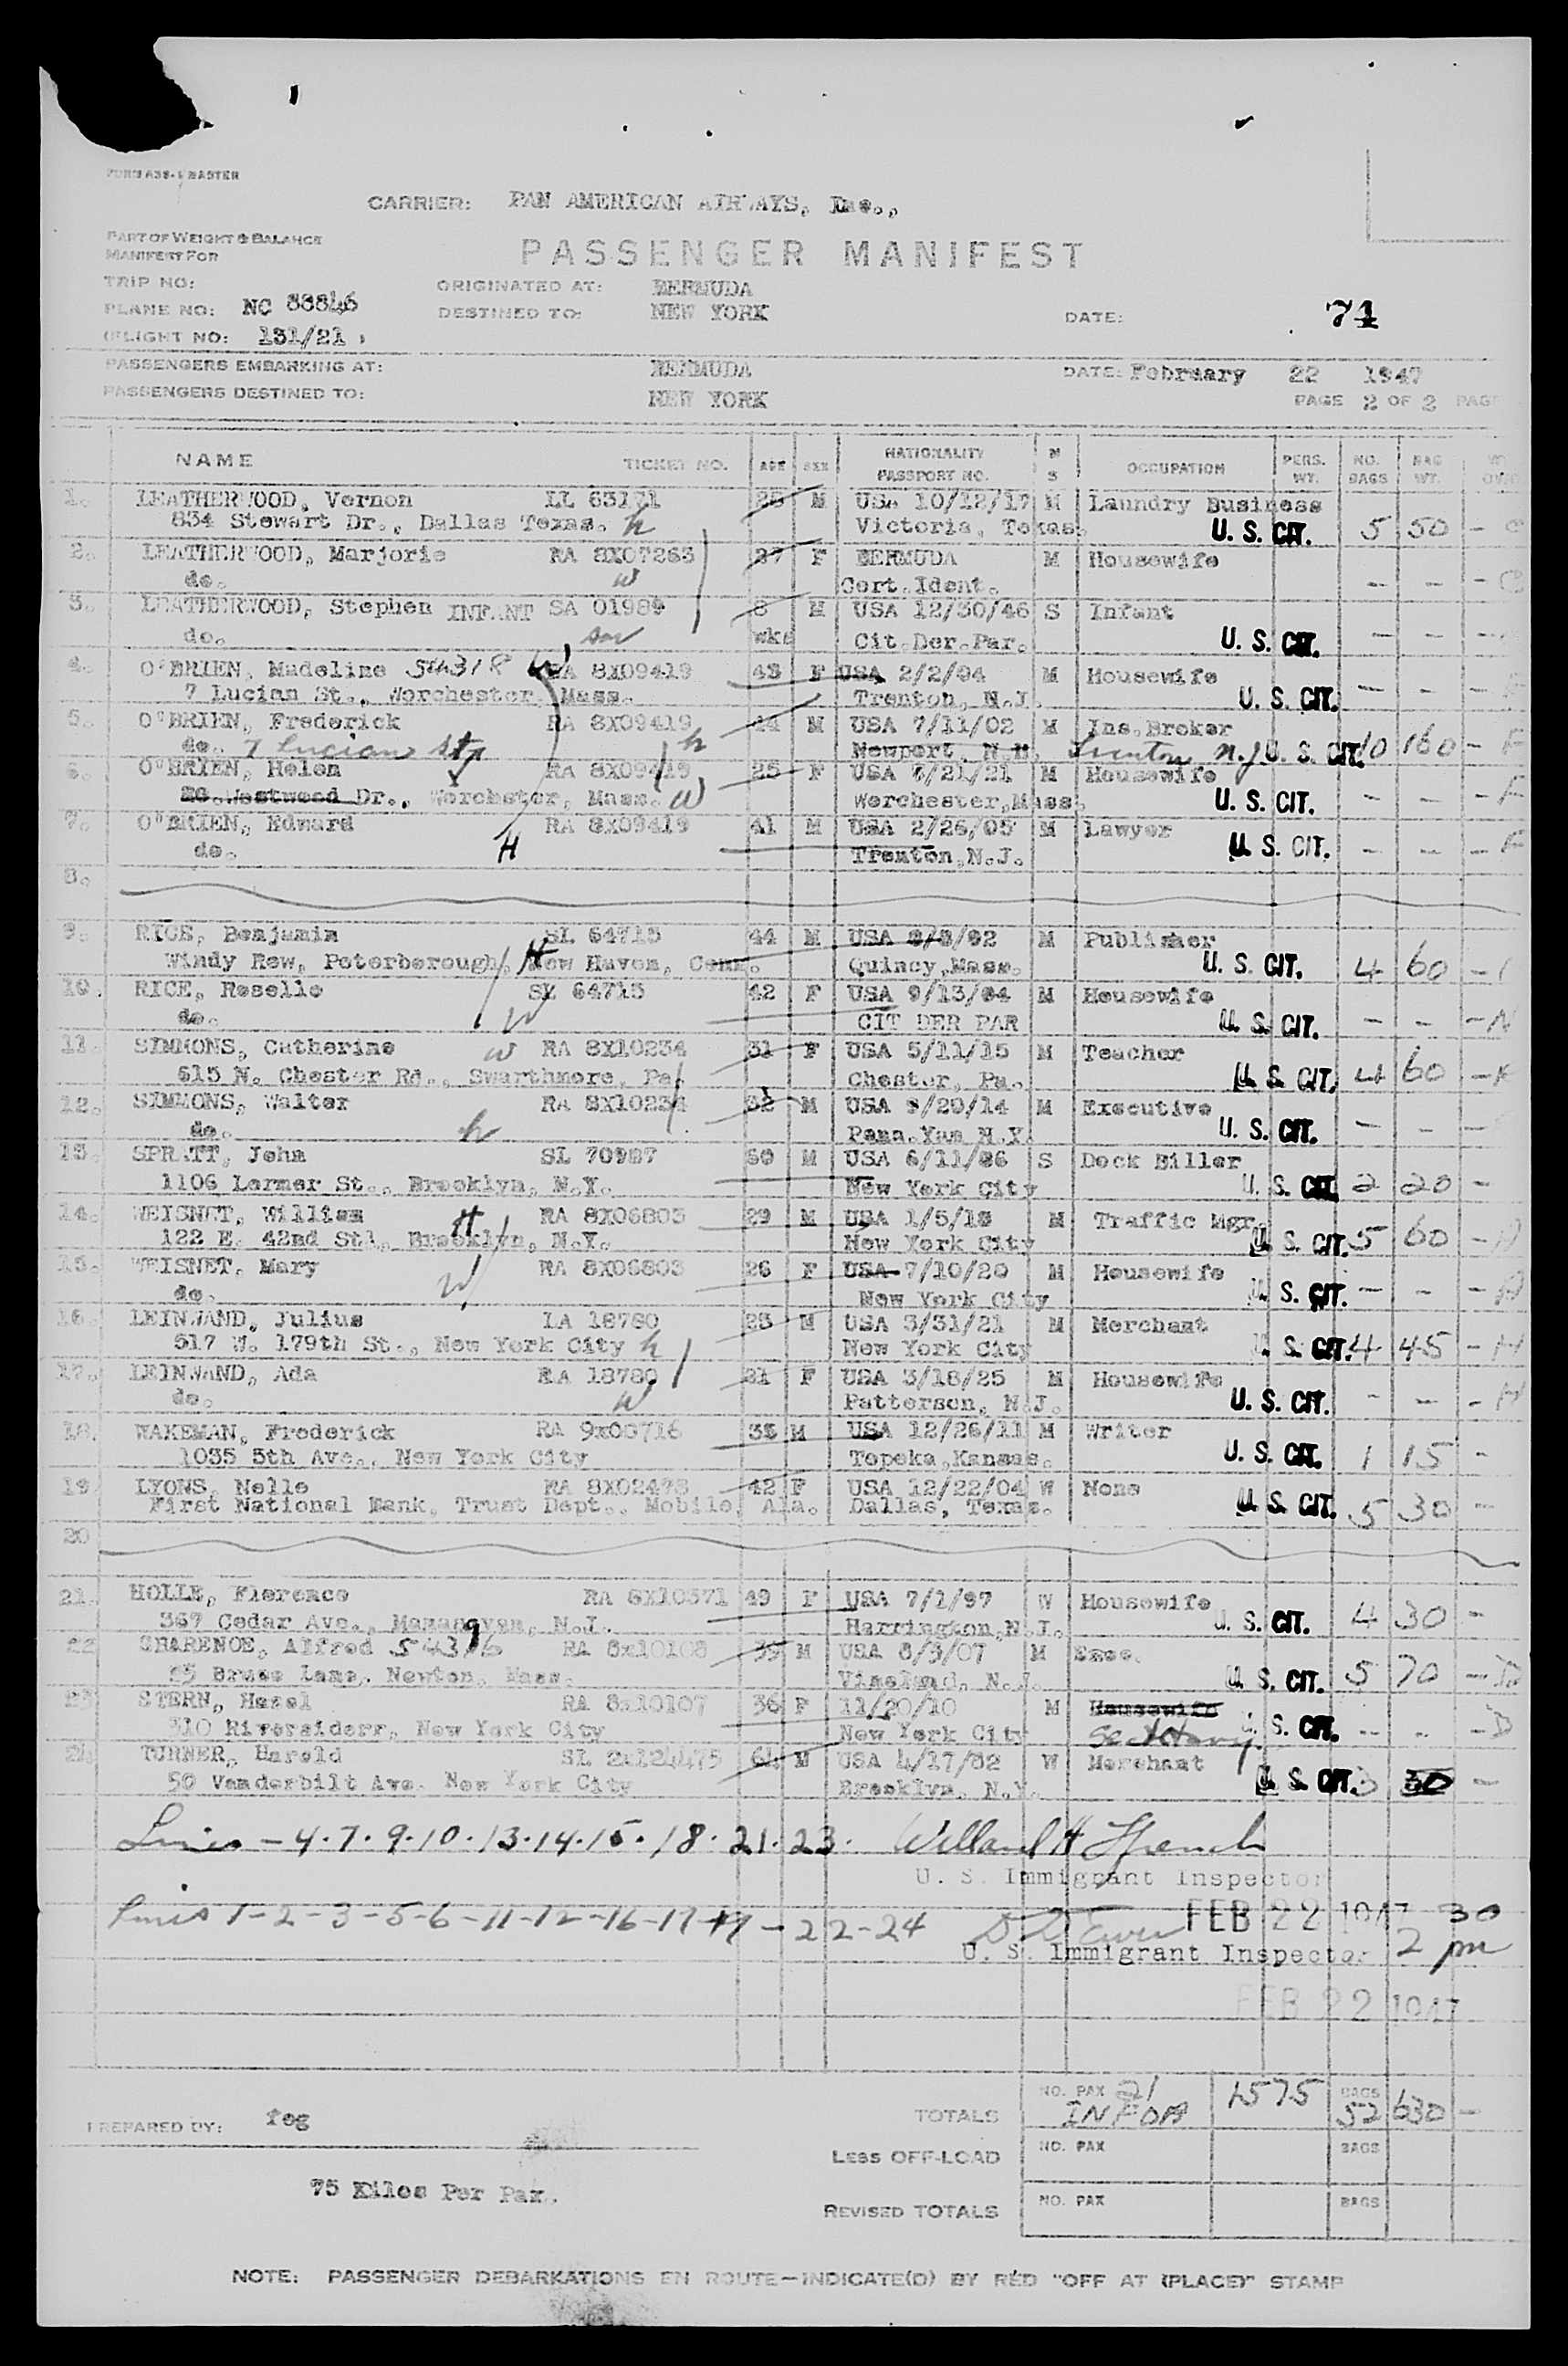 FORM A38-1 MASTER
CARRIER: PAN AMERICAN AIRWAYS, Inc.,
PART OF WEIGHT & BALANCE
MANIFEST FOR
PASSENGER MANIFEST
TRIP NO:
ORIGINATED AT: BERMUDA
PLANE NO: NC 88846
DESTINED TO: NEW YORK
DATE: 71
FLIGHT NO: 131/21
PASSENGERS EMBARKING AT: BERMUDA
DATE: February 22 1947
PASSENGERS DESTINED TO: NEW YORK
PAGE 2 OF 2 PAGE
NAME TICKET NO. AGE SEX NATIONALITY PASSPORT NO. M S OCCUPATION PERS. WT. NO. BAGS BAG WT.
1. LEATHERWOOD, Vernon LL 63171 M USA 10/12/17 M Laundry Business
834 Stewart Dr., Dallas Texas. h Victoria, Texas. U. S. CIT. 5 50 -
2. LEATHERWOOD, Marjorie RA 8X07263 27 F BERMUDA M Housewife
do. w Cert.Ident. - - -
3. LEATHERWOOD, Stephen INFANT SA 01989 8 M USA 12/30/46 S Infant
do. son wks Cit.Der.Par. U. S. CIT. - - -
4. O'BRIEN, Madeline W RA 8X09419 43 F USA 2/2/04 M Housewife
7 Lucian St., Worchester, Mass. Trenton, N.J. U. S. CIT. - - -
5. O'BRIEN, Frederick RA 8X09419 44 M USA 7/11/02 M Ins.Broker
do. 7 Lucian St h Newport, Trenton N.J. U. S. CIT. 10 160 - F
6. O'BRIEN, Helen RA 8X09419 25 F USA 7/21/21 M Housewife
Westwood Dr., Worchester, Mass. W Worchester,Mass. U. S. CIT. - - - F
7. O'BRIEN, Edward RA 8X09419 41 M USA 2/26/05 M Lawyer
do. H Trenton,N.J. U. S. CIT. - - - F
8.
9. RICE, Benjamin SL 64715 44 M USA M Publisher
Windy Row, Peterborough, H New Haven, Conn. Quincy,Mass. U. S. CIT. 4 60 -
10. RICE, Roselle SL 64715 42 F USA 9/13/04 M Housewife
do. W CIT DER PAR U. S. CIT. - - - N
11. SIMMONS, Catherine w RA 8X10234 31 F USA 5/11/15 M Teacher
615 N. Chester Rd., Swarthmore, Pa. Chester, Pa. U. S. CIT. 4 60 -
12. SIMMONS, Walter RA 8X10234 32 M USA M Executive
do. h Penn.Yan N.Y. U. S. CIT. - - -
13. SPRATT, John SL 70987 60 M USA 6/11/86 S Dock Biller
1106 Lormer St., Brooklyn, N.Y. New York City U. S. CIT. 2 20 -
14. WEISNET, William H RA 8X06803 29 M USA 1/5/18 M Traffic Mgr.
122 E. 42nd St., Brooklyn, N.Y. New York City U. S. CIT. 5 60 -
15. WEISNET, Mary RA 8X06803 26 F USA 7/10/20 M Housewife
do. W New York City U. S. CIT. - - -
16. LEINWAND, Julius LA 18780 25 M USA 3/31/21 M Merchant
517 W. 179th St., New York City h New York City U. S. CIT. 4 45 - H
17. LEINWAND, Ada RA 18780 21 F USA 3/18/25 M Housewife
do. w Patterson, N.J. U. S. CIT. - - - H
18. WAKEMAN, Frederick RA 9X00716 35 M USA 12/26/11 M Writer
1035 5th Ave., New York City Topeka,Kansas. U. S. CIT. 1 15 -
19. LYONS, Nelle RA 8X02473 42 F USA 12/22/04 W None
First National Bank, Trust Dept., Mobile, Ala. Dallas, Texas. U. S. CIT. 5 30 -
20
21. HOLLE, Florence RA 8X10371 49 F USA 7/1/97 W Housewife
367 Cedar Ave., N.J. Harrington,N.J. U. S. CIT. 4 30 -
22 Alfred RA 8x10108 39 M USA 8/3/07 M Exec.
Bruce Lane, Newton, Mass. Vineland, N.J. U. S. CIT. 5 70 - D
23 STERN, Hazel RA 8x10107 36 F 11/20/10 M Housewife
310 New York City New York City Secretary U. S. CIT. - - - D
24 TURNER, Harold 64 M USA 4/17/82 W Merchant
50 Vanderbilt Ave. New York City Brooklyn, N.Y. U. S. CIT. 3 30 -
Lines - 4.7.9.10.13.14.15.18.21.23. Willard H French
U. S. Immigrant Inspector
Lines 1-2-3-5-6-11-12-16-17-19-22-24
FEB 22 1947 2 30 pm
U. S. Immigrant Inspector
FEB 22 1947
PREPARED BY: feg
TOTALS NO. PAX 21 1575 BAGS 52 630 -
LESS OFF-LOAD NO. PAX BAGS
75 Kilos Per Pax.
REVISED TOTALS NO. PAX BAGS
NOTE: PASSENGER DEBARKATIONS EN ROUTE—INDICATE(D) BY RED "OFF AT (PLACE)" STAMP